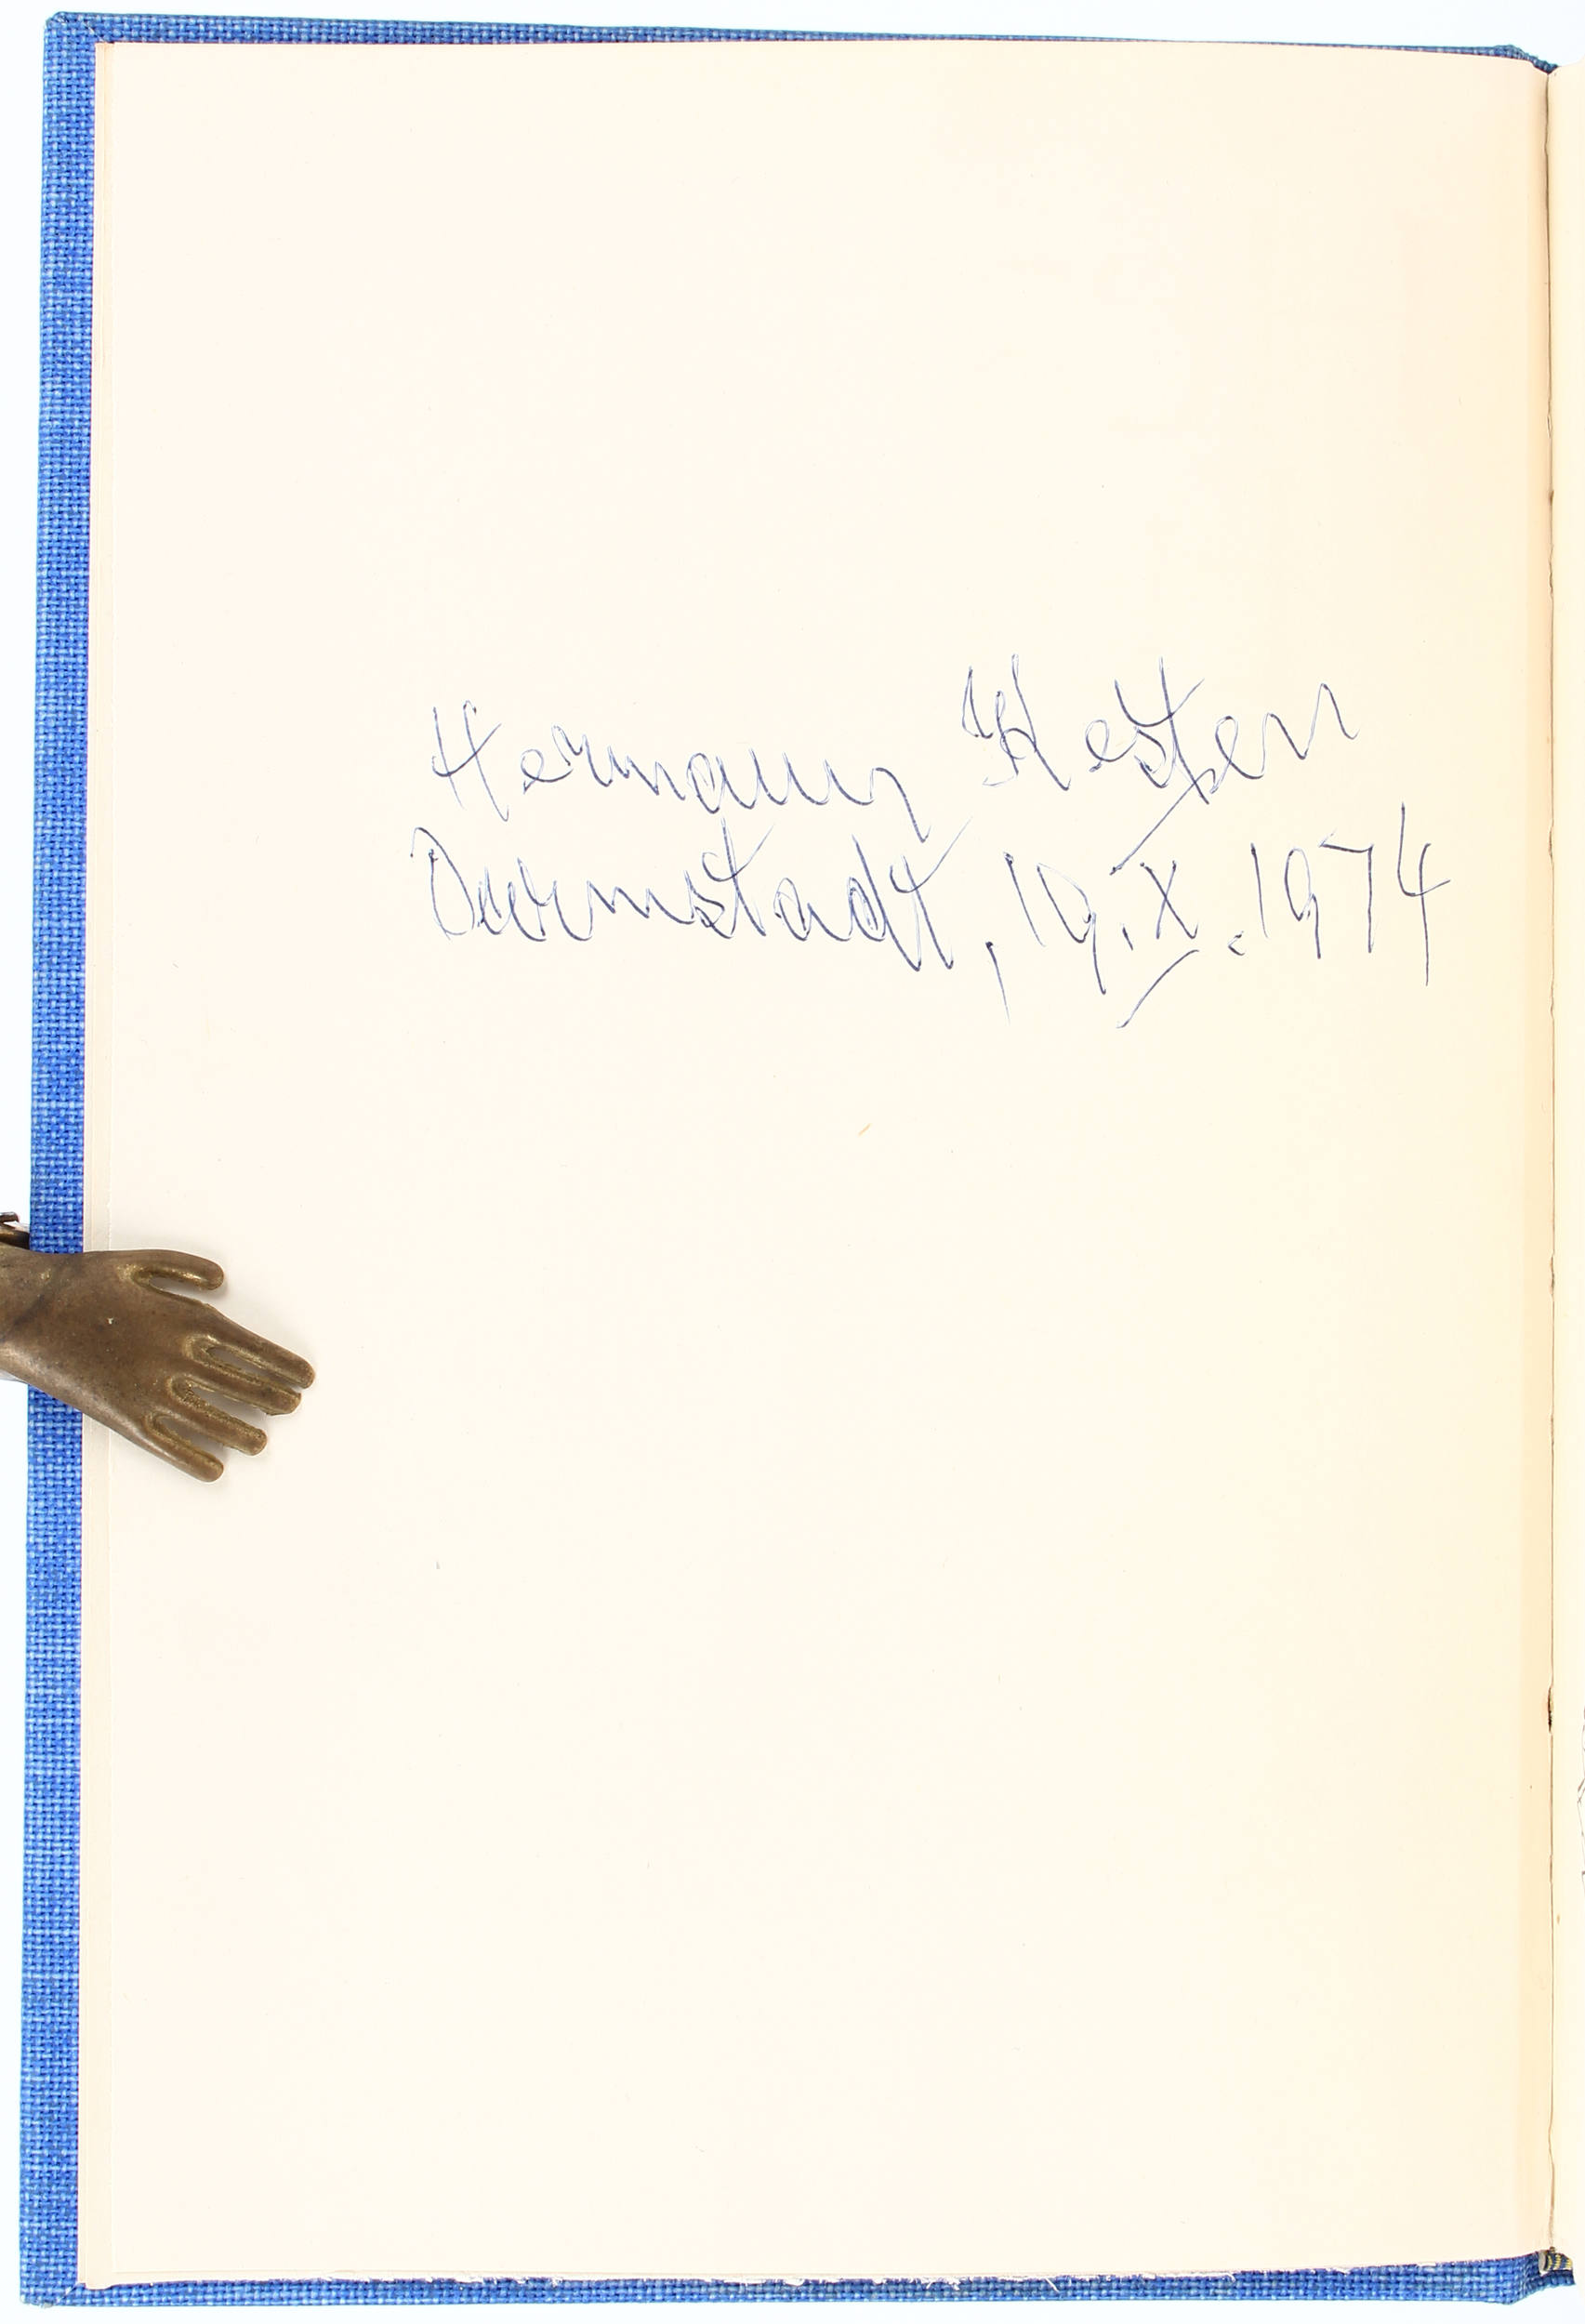 Hermann Kesten
Darmstadt, 19.X.1974